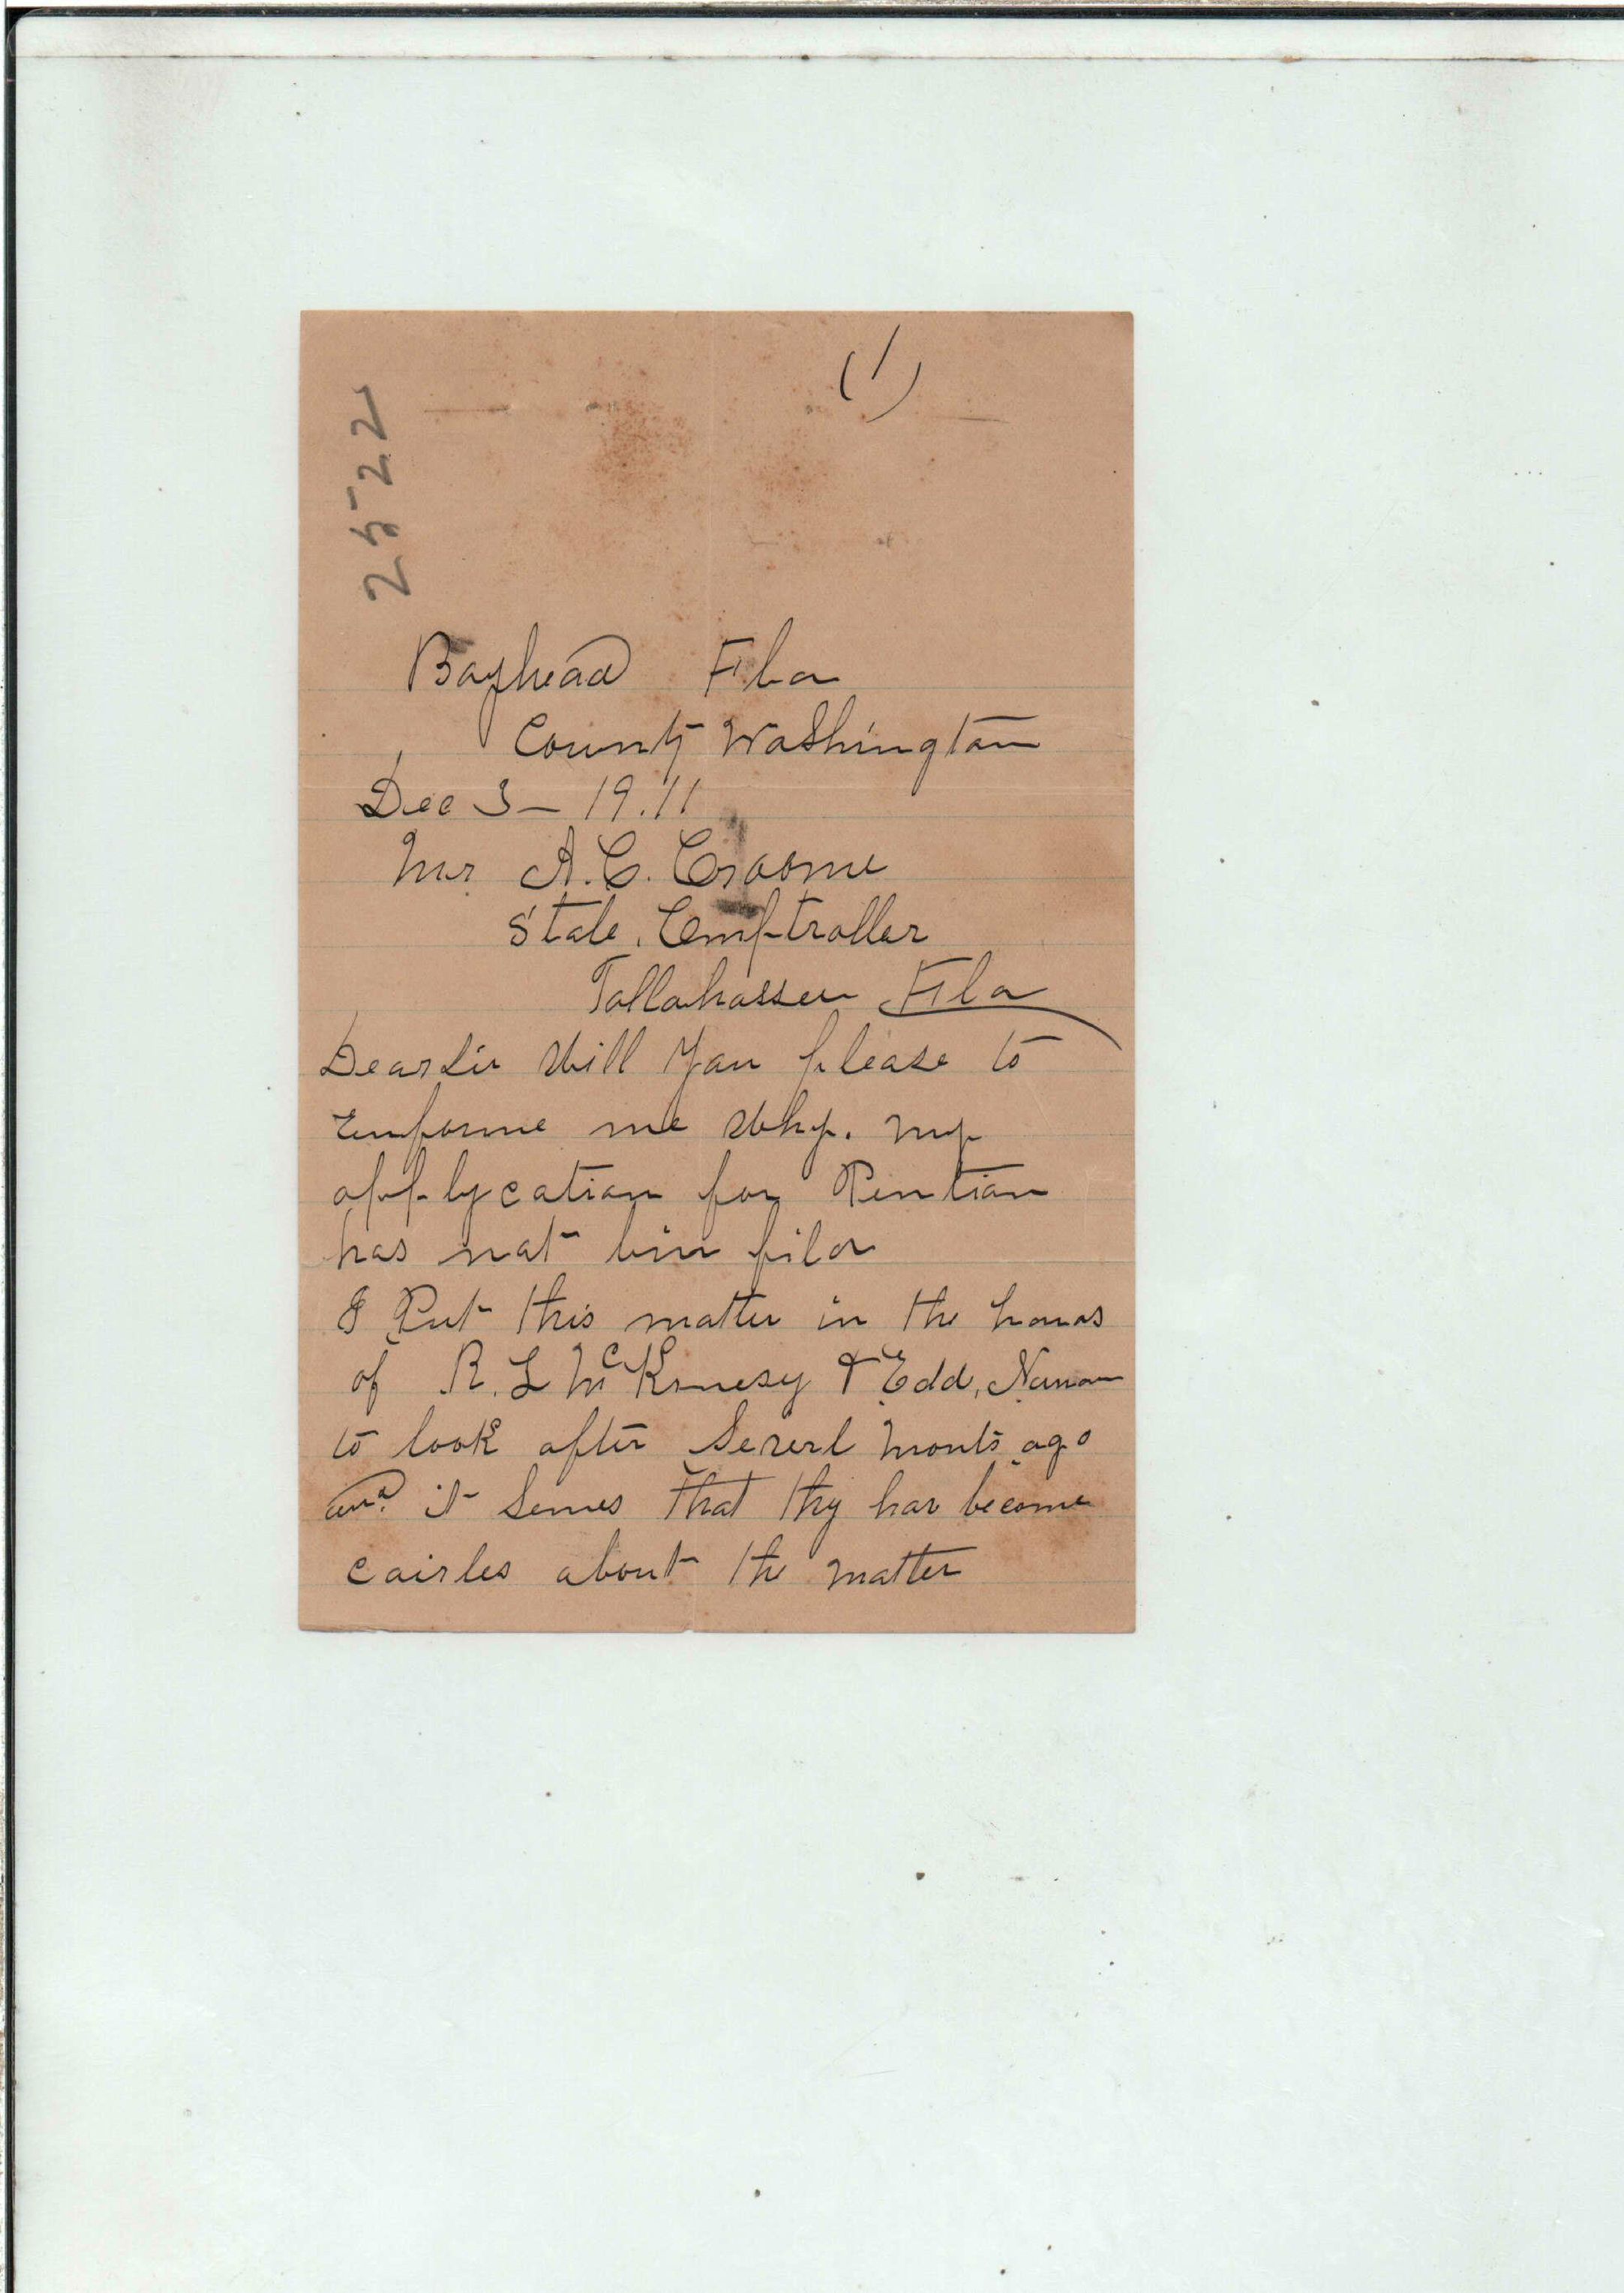 (1)
2522
Bayhead Fla
County Washington
Dec 3 - 19.11
Mr. A. C. Croome
State. Comptroller
Tallahassee Fla
Dear Sir Will You please to
enforme me Why. my
applycation for Pention
has not bin fild
I Put this matter in the hands
of R. L McKinesy & Edd,
to look after severl monts ago
and it semes that thy hav become
cairles about the matter